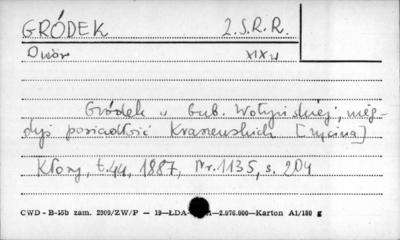 GRÓDEK Z.S.R.R.
Dwór XIX w
Gródek w Gub. Wołyńskiej, nieg-
dyś posiadłość Kraszewskich [rycina]
Kłosy, t. 44, 1887, Nr. 1135, s. 204
CWD - B-15b zam. 2909/ZW/P — 19—ŁDA- -2.076.000—Karton A1/180 g